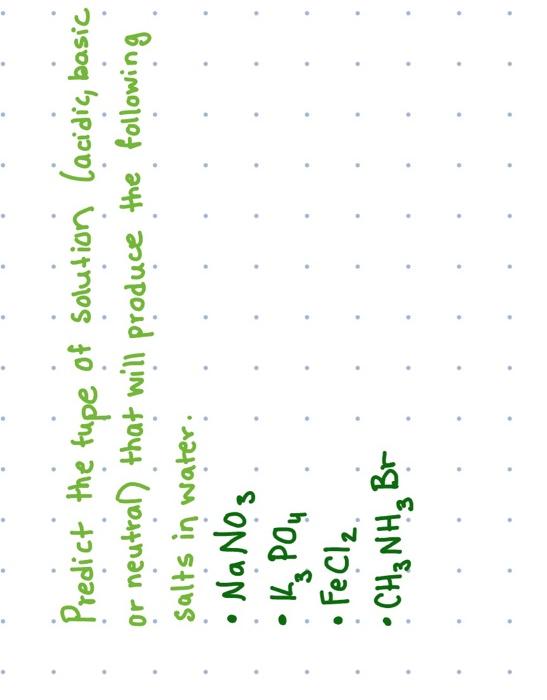 Predict the type of solution (acidic, basic
or neutral) that will produce the following
salts in water.
• NaNO₃
• K₃PO₄
• FeCl₂
• CH₃NH₃Br